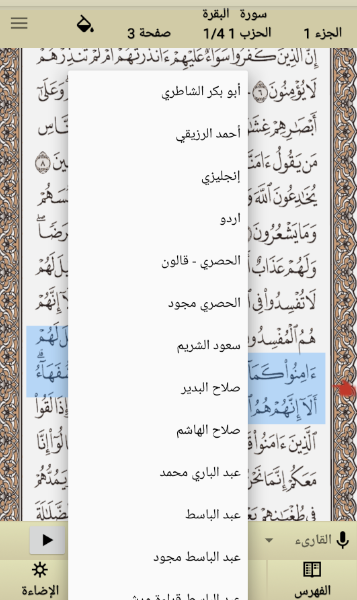 سورة البقرة
الجزء 1
الحزب 1 1/4
صفحة 3
إِنَّ الَّذِينَ كَفَرُوا سَوَاءٌ عَلَيْهِمْ ءَأَنذَرْتَهُمْ أَمْ لَمْ تُنذِرْهُمْ
لَا يُؤْمِنُونَ ٦ وَعَلَىٰ
أَبْصَارِهِمْ النَّاسِ
مَن يَقُولُ ءَامَنَّا ٨
يُخَادِعُونَ اللَّهَ
وَمَا يَشْعُرُونَ
وَلَهُمْ عَذَابٌ لَهُمْ
لَا تُفْسِدُوا فِي إِنَّهُمْ
هُمُ الْمُفْسِدُونَ لَهُمْ
ءَامِنُوا كَمَا
أَلَا إِنَّهُمْ هُمُ قَالُوا
الَّذِينَ ءَامَنُوا إِنَّا
مَعَكُمْ إِنَّمَا نَحْنُ
فِي طُغْيَانِهِمْ الضَّلَالَةَ
أبو بكر الشاطري
أحمد الرزيقي
إنجليزي
اردو
الحصري - قالون
الحصري مجود
سعود الشريم
صلاح البدير
صلاح الهاشم
عبد الباري محمد
عبد الباسط
عبد الباسط مجود
القارىء
الفهرس
الإضاءة